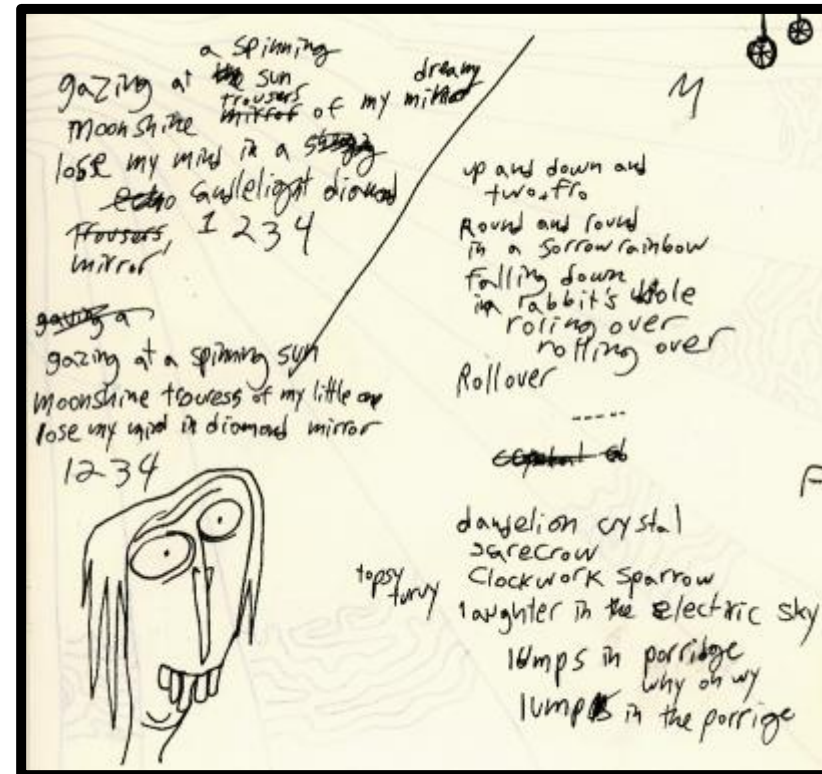 a spinning
gazing at the sun
dreamy
trousers
moonshine mirror of my mirror
lose my mind in a
echo candlelight diamond
trousers, 1 2 3 4
mirror
gazing a
gazing at a spinning sun
moonshine trouress of my little one
lose my mind in diamond mirror
1 2 3 4
M
up and down and
two + fro
Round and round
in a sorrow rainbow
Falling down
in rabbit's hole
roling over
rolling over
Rollover
dandelion crystal
scarecrow
Clockwork sparrow
topsy
turvy
laughter in the electric sky
lumps in porridge
why oh wy
lumps in the porrige